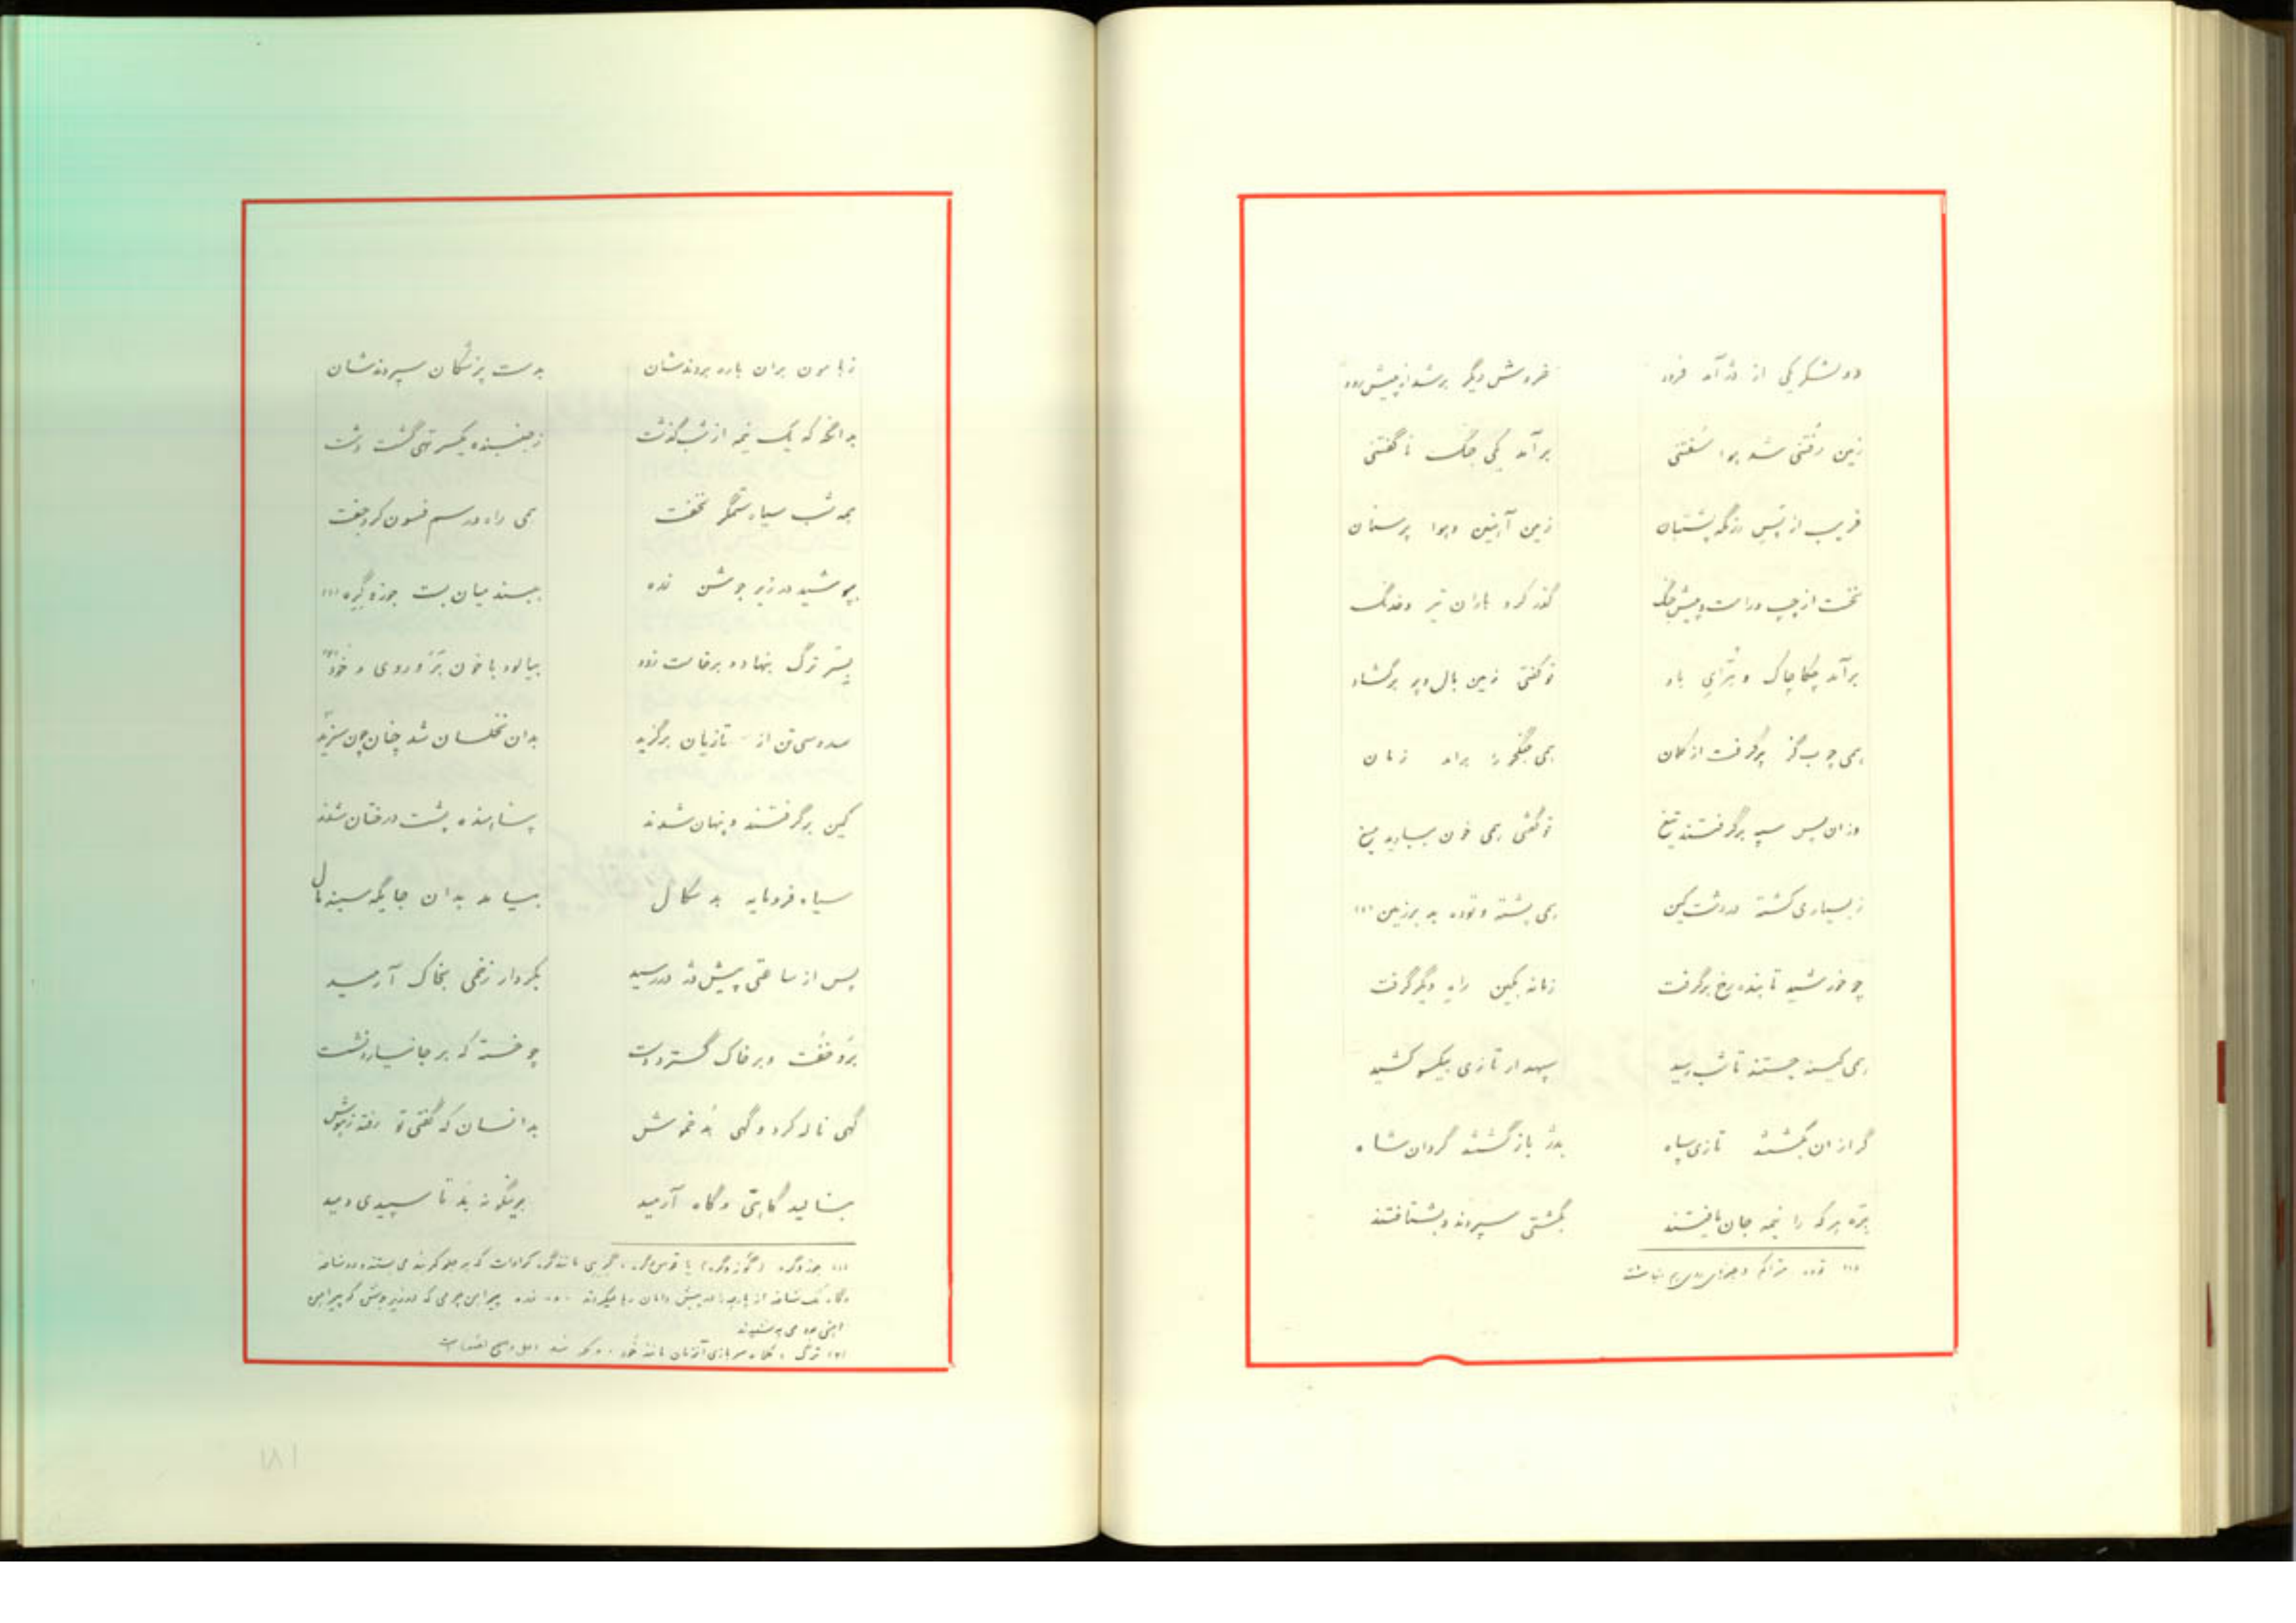 دو لشکر یکی از دژ آمد فرود خروش دگر برشد از پیش رود
زمین رُفتنی شد هوا سُفتنی برآمد یکی جنگ ناگفتنی
فریب از پس دژ نگه پشتبان زمین آهنین و هوا پرسنان
نخست از چپ و راست و پیش جنگ گذر کرد باران تیر و خدنگ
برآمد چکاچاک و بُرّای باد تو گفتی زمین بال و پر برگشاد
همی چوب گز پر گرفت از کمان همی جنگجو را برآمد زمان
وزان پس سپه برگرفتند تیغ تو گفتی همی خون ببارید میغ
ز بسیاری کشته در دشت کین همی پشته و توده بد بر زمین (۱)
چو خورشید تابنده رخ برگرفت زمانه بکین راه دیگر گرفت
همی کینه جستند تا شب رسید سپهدار تازی بیکسو کشید
گرازان بگشتند تازی سپاه بدژ بازگشتند گردان شاه
هرکه را نیمه جان یافتند بکشتی سپردند و بشتافتند
(۱) توده متراکم و چیزهای روی هم انباشته
ز هامون بران باره بردندشان بدست پزشکان سپردندشان
بدانگه که یک نیمه از شب گذشت ز جنبنده یکسر تهی گشت دشت
همه شب سیاه ستمگر نخفت همی راه و رسم فسون کرد جفت
بپوشید در زیر جوشن زره ببستند میان بست جوزه گره (۱)
بسر ترگ بنهاد و برخاست زود بیالود با خون بر و روی و خود (۲)
سد و سی تن از تازیان برگزید بدان نخلسان شد چنان چون سزید
کمین برگرفتند و پنهان شدند پناهنده پشت درختان شدند
سیاه فرومایه بد سگال بیامد بدان جایگه سینه مال
پس از ساعتی پیش دژ در رسید بکردار زخمی بخاک آرمید
برو خفت و بر خاک گسترد دست چو خسته که بر جانسپارد نشست
گهی ناله کرد و گهی بُد خموش بدانسان که گفتی تو رفته ز هوش
بنالید گاهی و گاه آرمید برینگونه بد تا سپیدی دمید
(۱) جوزه گره
(۲) ترگ، کلاه سربازی آنزمان مانند خود
۱۸۱